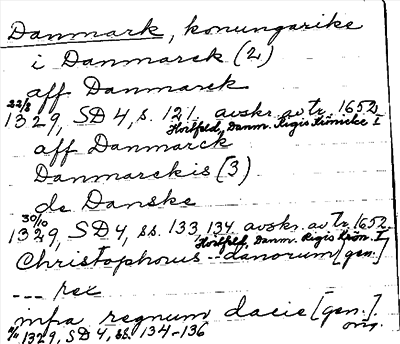 Danmark, konungarike
i Danmarck (2)
aff Danmarck
22/8 1329, SD 4, s. 121, avskr. av tr. 1652
Hvitfeld, Danm. Rigis Krönicke I
aff Danmarck
Danmarckis (3)
de Danske
30/10 1329, SD 4, ss. 133, 134 avskr. av tr. 1652
Hvitfeld, Danm. Rigis Krön. I
Christophorus --- danorum [gen.]
--- rex
infra regnum dacie [gen.]
1329, SD 4, ss. 134-136 orig.